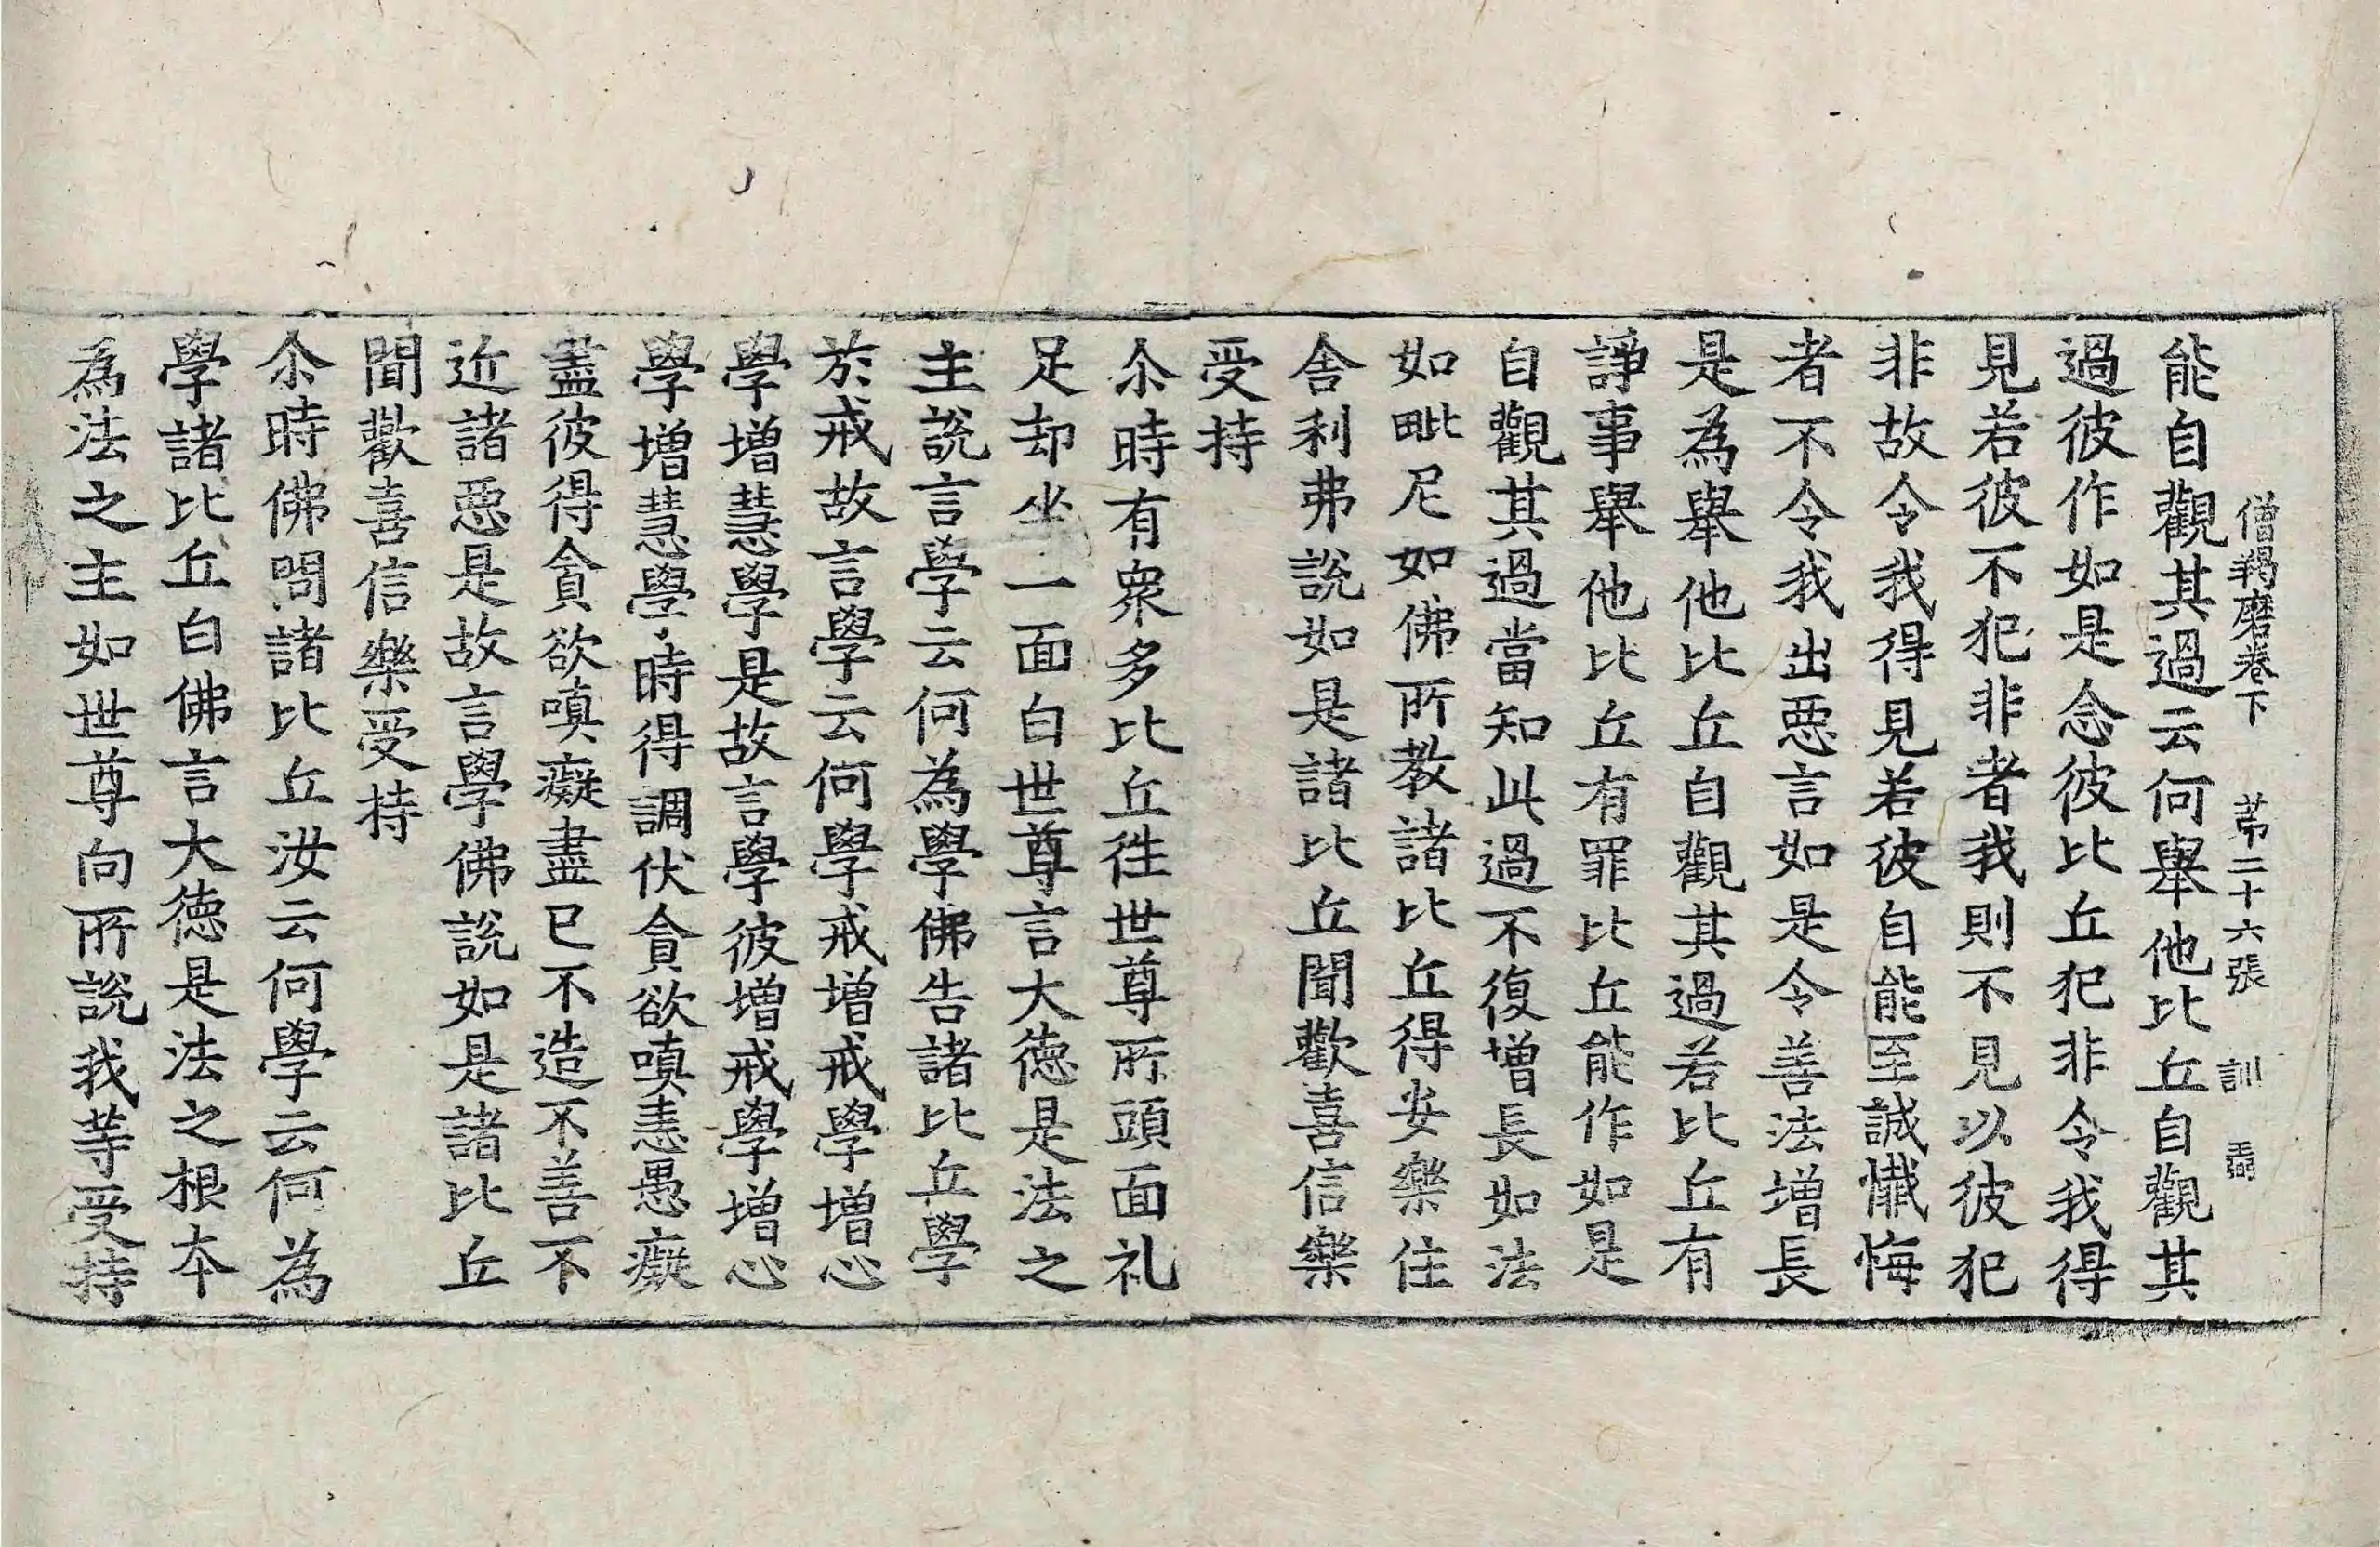 僧羯磨卷下 苐二十六張 訓
能自觀其過云何舉他比丘自觀其
過彼作如是念彼比丘犯非令我得
見若彼不犯非者我則不見以彼犯
非故令我得見若彼自能至誠懺悔
者不令我出惡言如是令善法增長
是為舉他比丘自觀其過若比丘有
諍事舉他比丘有罪比丘能作如是
自觀其過當知此過不復增長如法
如毗尼如佛所教諸比丘得安樂住
舍利弗說如是諸比丘聞歡喜信樂
受持
尒時有衆多比丘徃世尊所頭面礼
足却坐一面白世尊言大德是法之
主說言學云何為學佛告諸比丘學
於戒故言學云何學戒增戒學增心
學增慧學是故言學彼增戒學增心
學增慧學時得調伏貪欲嗔恚愚癡
盡彼得貪欲嗔癡盡已不造不善不
近諸惡是故言學佛說如是諸比丘
聞歡喜信樂受持
尒時佛問諸比丘汝云何學云何為
學諸比丘白佛言大德是法之根本
為法之主如世尊向所說我等受持